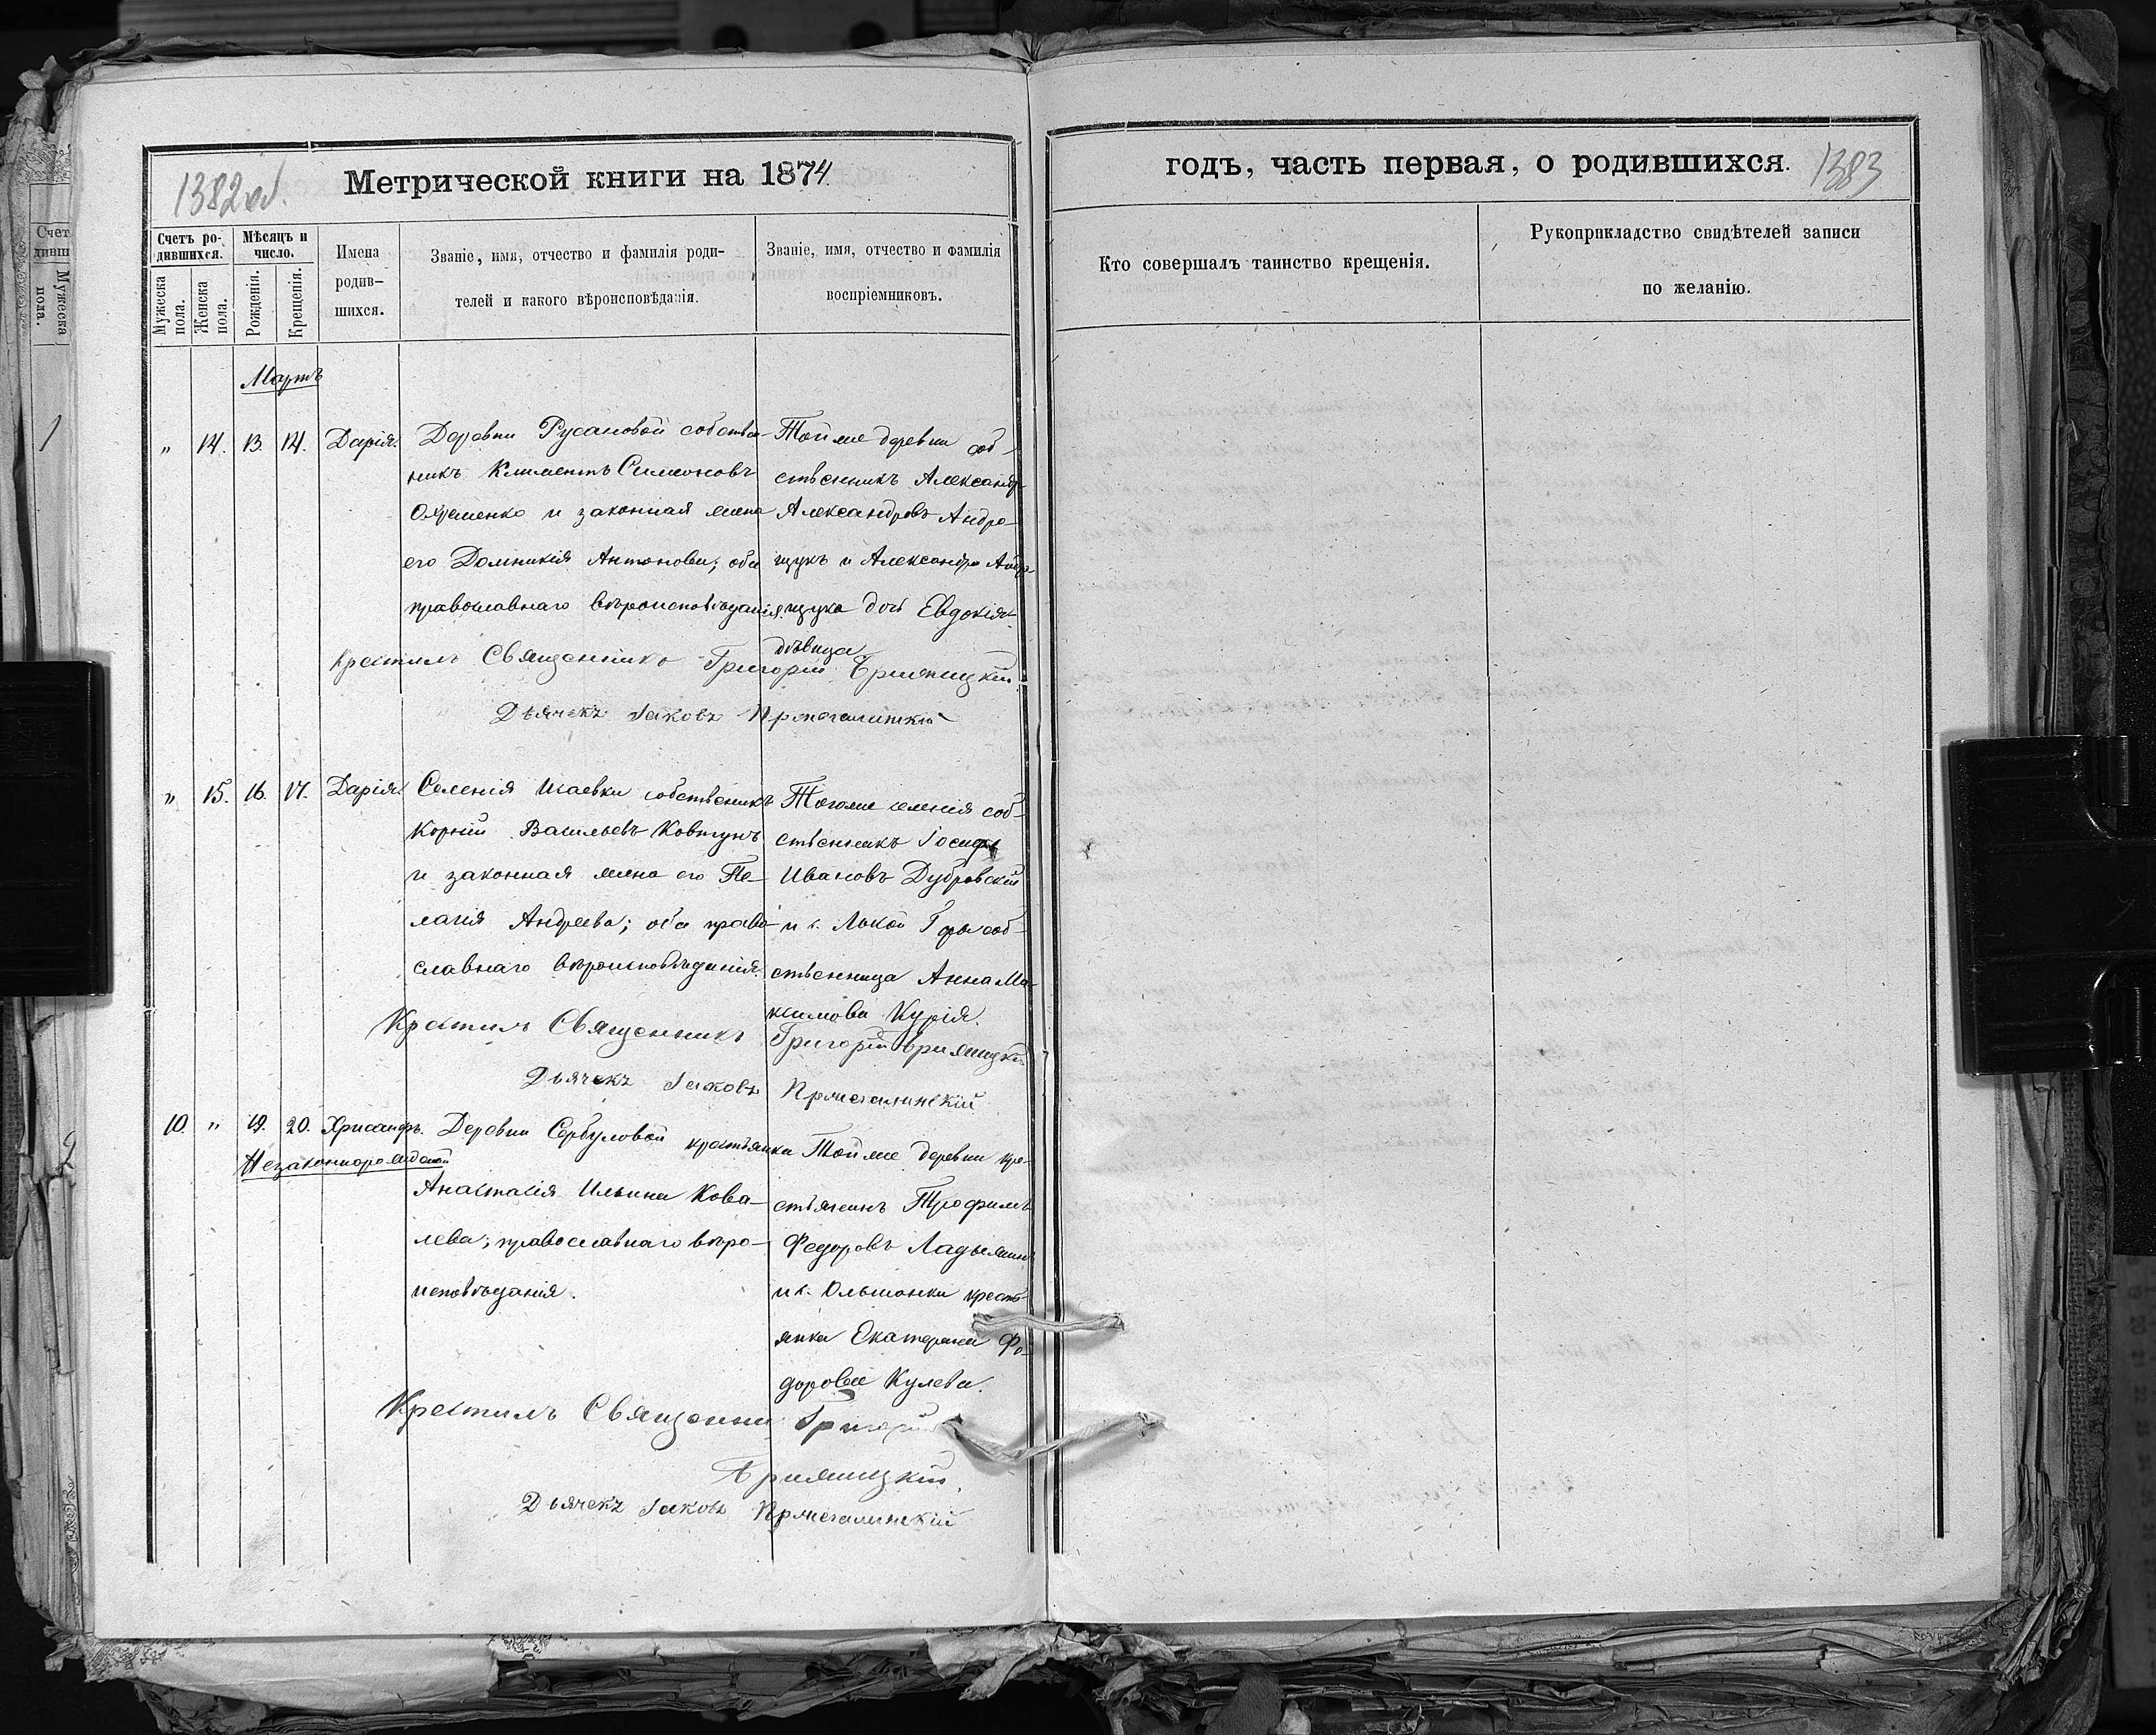 1382 об.
Метрической книги на 1874
годъ, часть первая, о родившихся.
1383
Счетъ ро-
дившихся.
Мѣсяцъ и
число.
Мужеска
пола.
Женска
пола.
Рожденія.
Крещенія.
Имена
родив-
шихся.
Званіе, имя, отчество и фамилія роди-
телей и какого вѣроисповѣданія.
Званіе, имя, отчество и фамилія
воспріемниковъ.
Кто совершалъ таинство крещенія.
Рукоприкладство свидѣтелей записи
по желанію.
Счет
дивш
Мужеска
пола.
Мартъ
" 14. 13. 14. Дарія.
Деревни Русановой собствен-
никъ Климентъ Симеоновъ
и законная жена
его Домникія Антонова; оба
православнаго вѣроисповѣданія.
Той же деревни соб-
ственникъ Александръ
Александровъ Андро-
щукъ и Александра Андро-
щука дочь Евдокія
дѣвица
Крестилъ Священникъ Григорій
Дьячекъ Іаковъ
" 15. 16. 17. Дарія
Селенія Исаевки собственникъ
Корній Васильевъ Ковтунъ
и законная жена его Пе-
лагія Андреева; оба право-
славнаго вѣроисповѣданія.
Тогоже селенія соб-
ственникъ Іосифъ
Ивановъ Дубровскій
и с. Лысой Горы соб-
ственница Анна Ма-
ксимова Курія.
Крестилъ Священникъ Григорій
Дьячекъ Іаковъ
10. " 19. 20. Хрисанфъ.
Незаконнорожденный
Деревни Сербуловой крестьянка
Анастасія Ильина Кова-
лева; православнаго вѣро-
исповѣданія.
Той же деревни кре-
стьянинъ Трофимъ
Федоровъ Ладыжинъ
и с. Ольшанки кресть-
янка Екатерина Фе-
дорова Кулева.
Крестилъ Священни Григорій
Дьячекъ Іаковъ